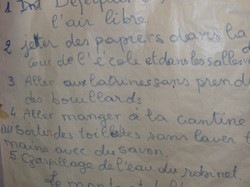 1 Déféquer à
l'air libre
2 jeter des papiers dans la
Cour de l'école et dans les salles
3 Aller aux latrines sans prend
des bouillards
4 Aller manger à la cantine
sans laver l
mains avec du savon.
5 Gaspillage de l'eau du robinet
Le